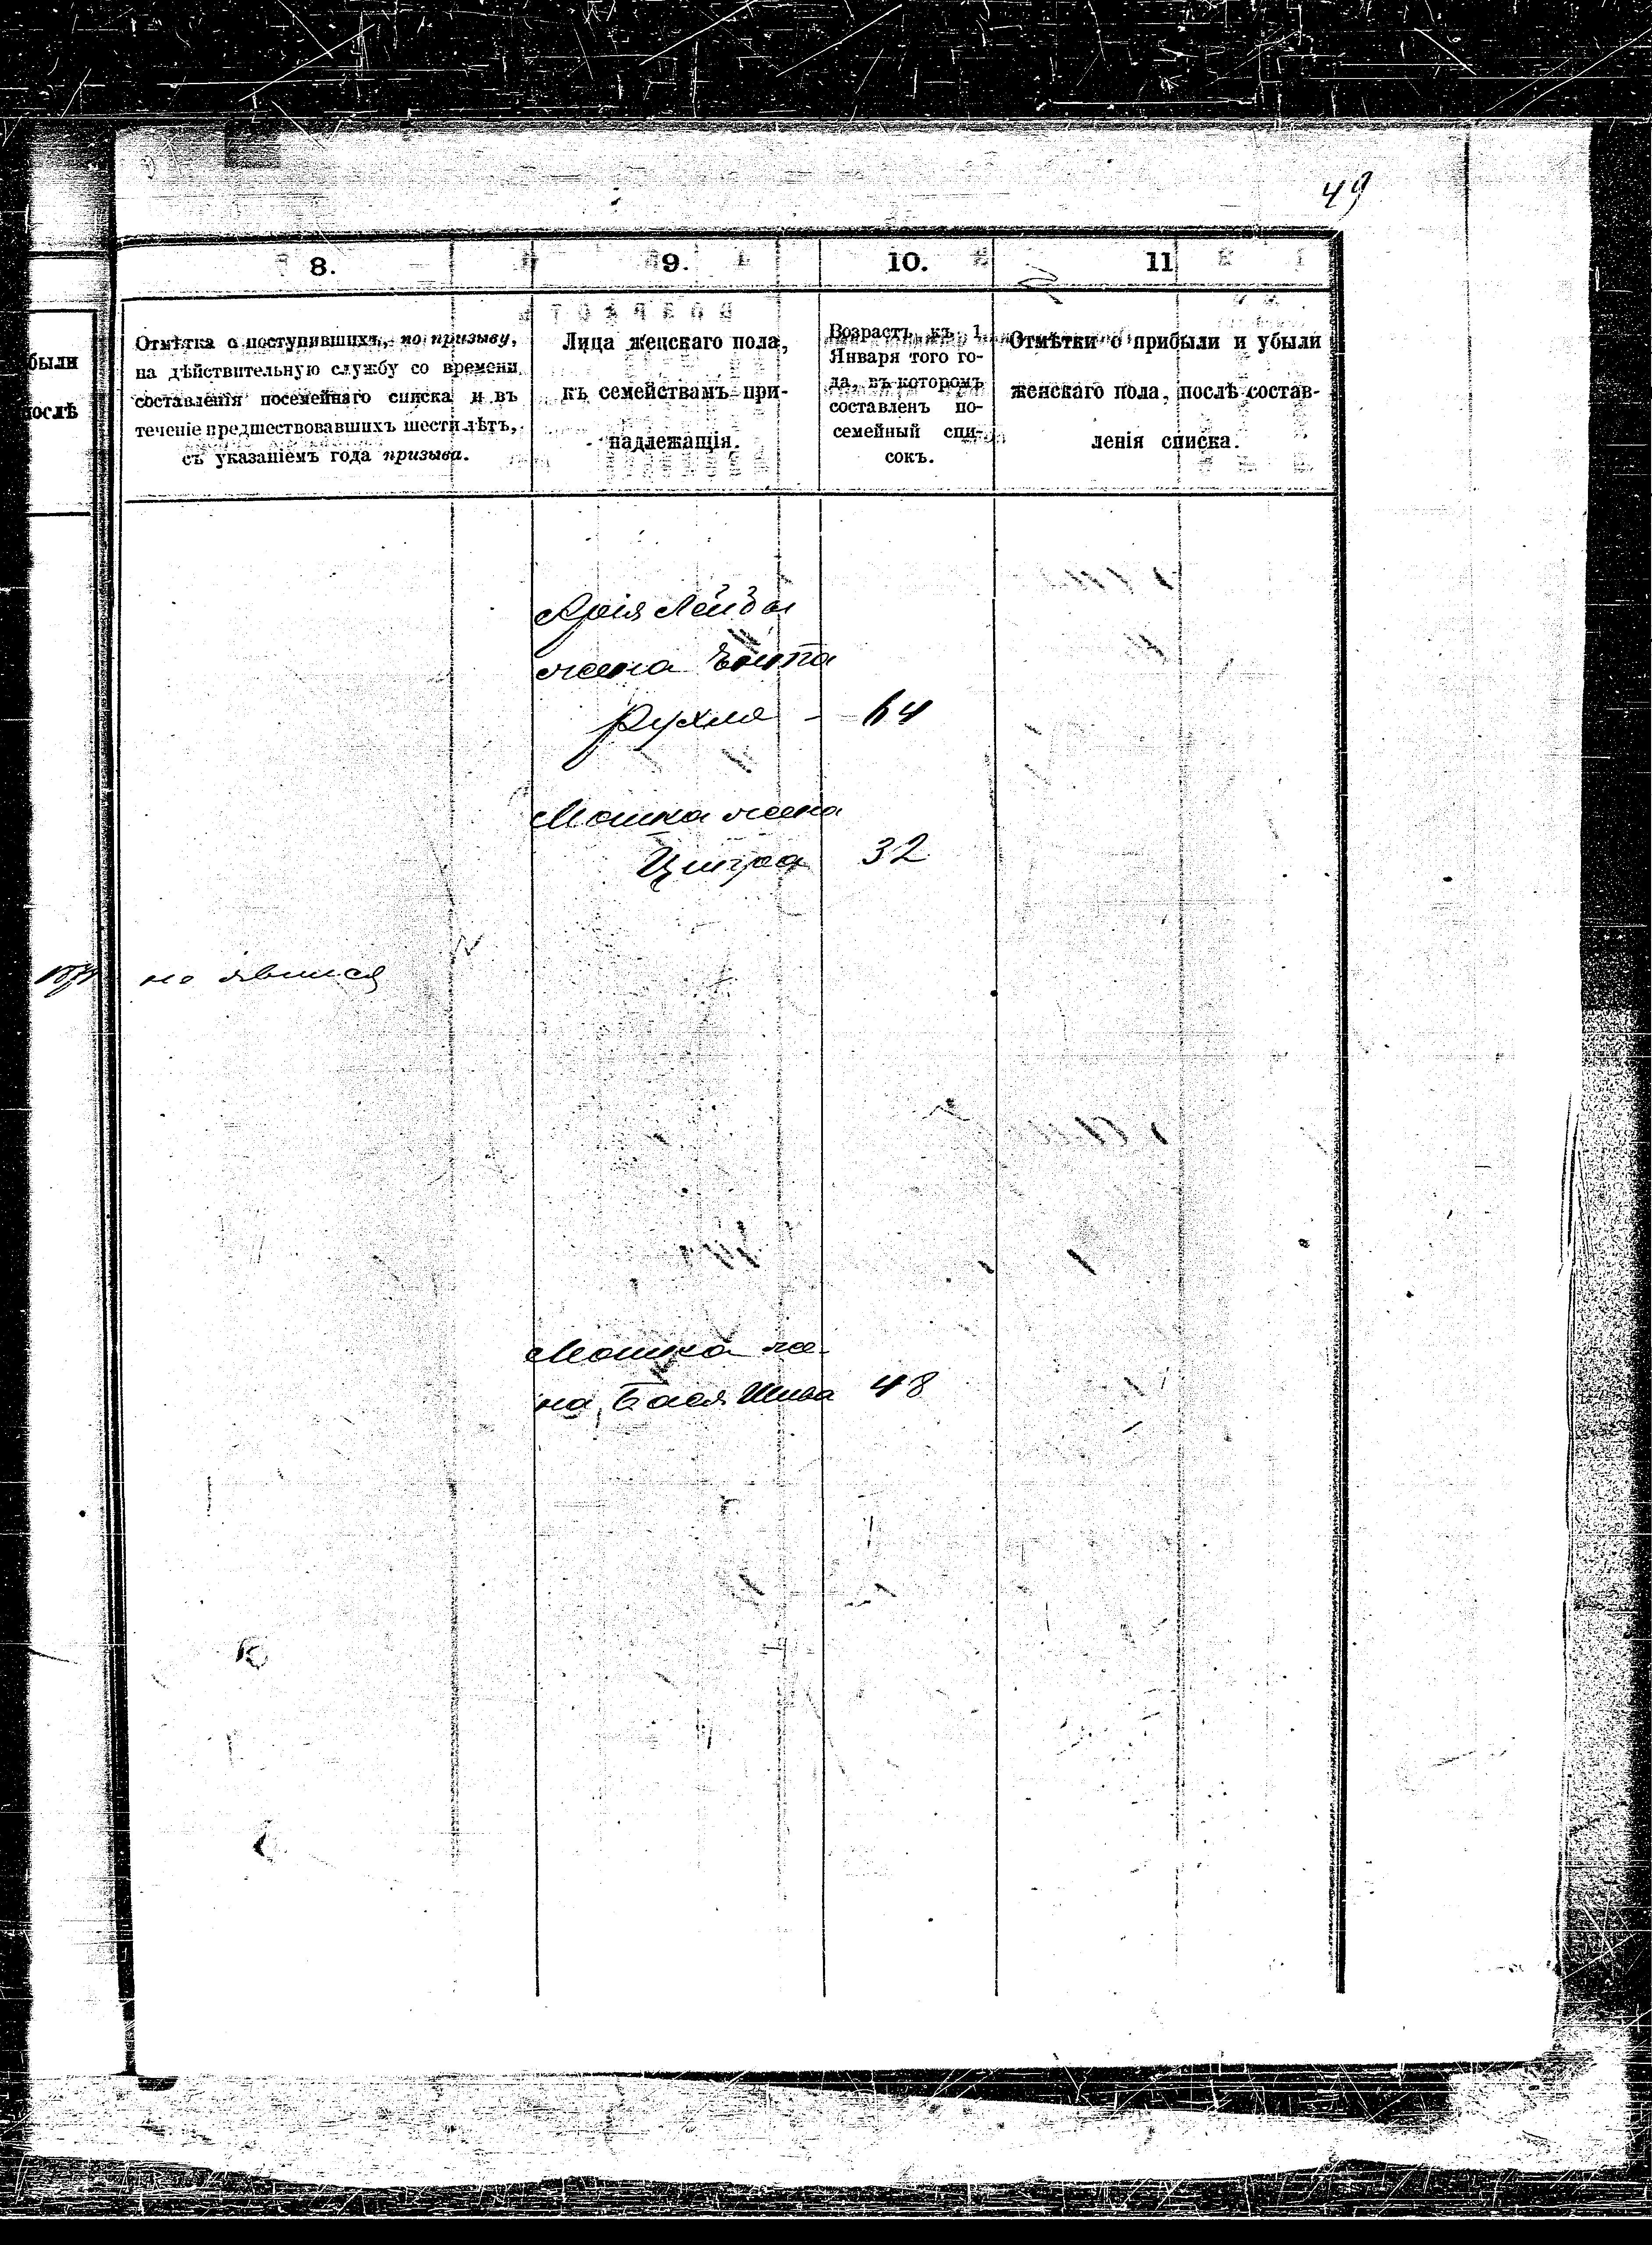 49
были
послѣ
8.
9.
10.
11
Отмѣтка о поступившихъ, по призыву,
на дѣйствительную службу со времени
составленія посемейнаго списка и въ
теченіе предшествовавшихъ шести лѣтъ,
съ указаніемъ года призыва.
Лица женскаго пола,
къ семействамъ при-
надлежащія.
Возрастъ къ 1
Января того го-
да, въ которомъ
составленъ по-
семейный спи-
сокъ.
Отмѣтки о прибыли и убыли
женскаго пола, послѣ состав-
ленія списка.
Арія Лейбы
жена
Рухля - 64
Мошка жена
Ципра 32
не явился
Мошка же-
на Бася Шива 48